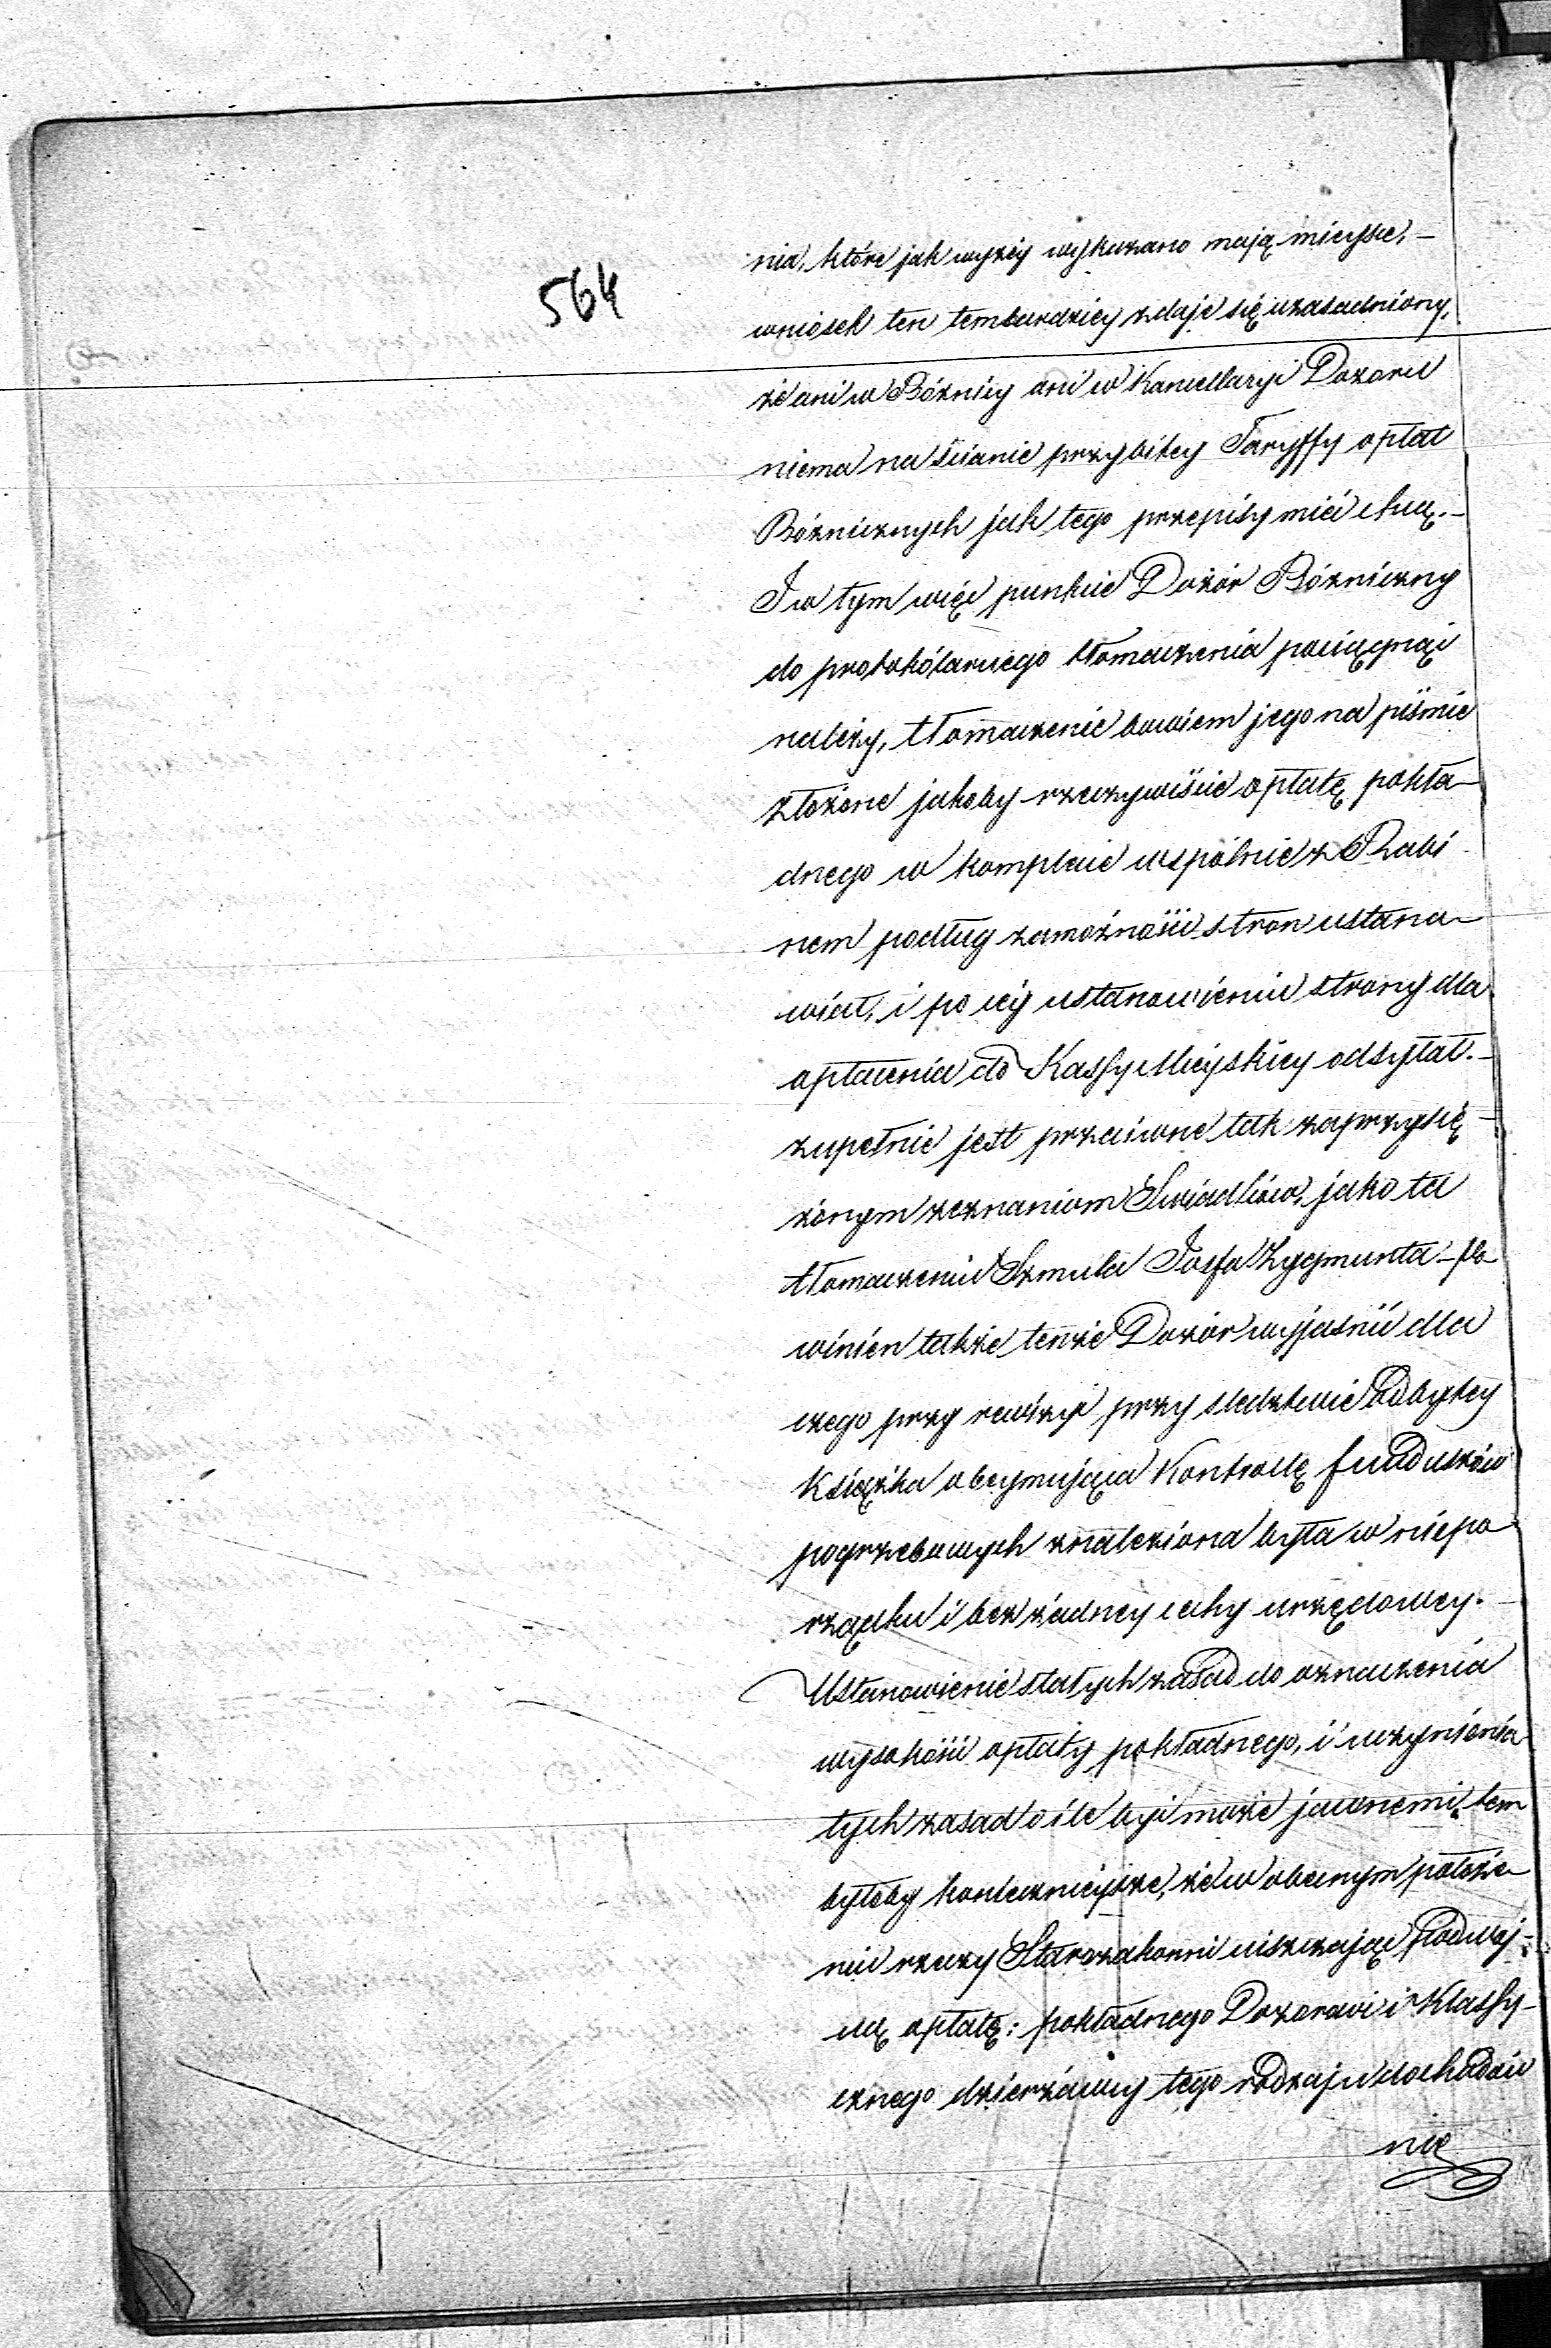 564
nia, które jak wyżéy wykazano mają mieysce, –
wniosek ten tembardziey zdaje się uzasadniony,
że ani w Bóżnicy ani w Kancellaryi Dozoru
niema na ścianie przybitey Taryffy opłat
Bóżnicznych jak tego przepisy mieć chcą. –
I w tym więc punkcie Dozór Bóżniczny
do protokólarnego tłomaczenia pociągnąć
należy, tłomaczenie bowiem jego na piśmie
złożone jakoby rzeczywiście opłatę pokła-
dnego w komplecie wspólnie z Rabi-
nem podług zamożności stron ustana-
wiał, i po jéy ustanowieniu strony dla
opłacenia do Kassy Mieyskiey odsyłał. –
zupełnie jest przeciwne tak zaprzysię-
żonym zeznaniom Świadków, jako też
tłomaczeniu Szmula Josfa Zygmunta – Po
winien także tenże Dozór wyjaśnić dla
czego przy rewizyi przy śledztwie odbytey
Książka obeymująca Kontrollę funduszów
pogrzebowych znaleziona była w niepo-
rządku i bez żadney cechy urzędowey. –
Ustanowienie stałych zasad do oznaczenia
wysokości opłaty pokładnego, i uczynienia
tych zasad o ile być może jawnemi, tem
byłoby konieczniejsze, że w obecnym położe-
niu rzeczy Starozakonni uiszczając podwój-
ną opłatę: pokładnego Dozorowi i Klassy-
cznego dzierżawcy tego rodzaju dochodów
nie